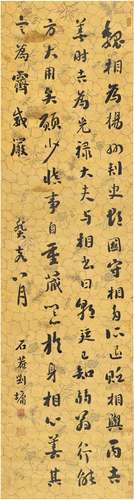 魏相為揚州刺史郡國守相多所貶退相與丙吉
善時吉為光祿大夫與相書曰朝廷已知弱翁行能
方大用矣願少慎事自重藏器於身相心善其
言為霽威嚴 癸亥八月
石菴劉墉